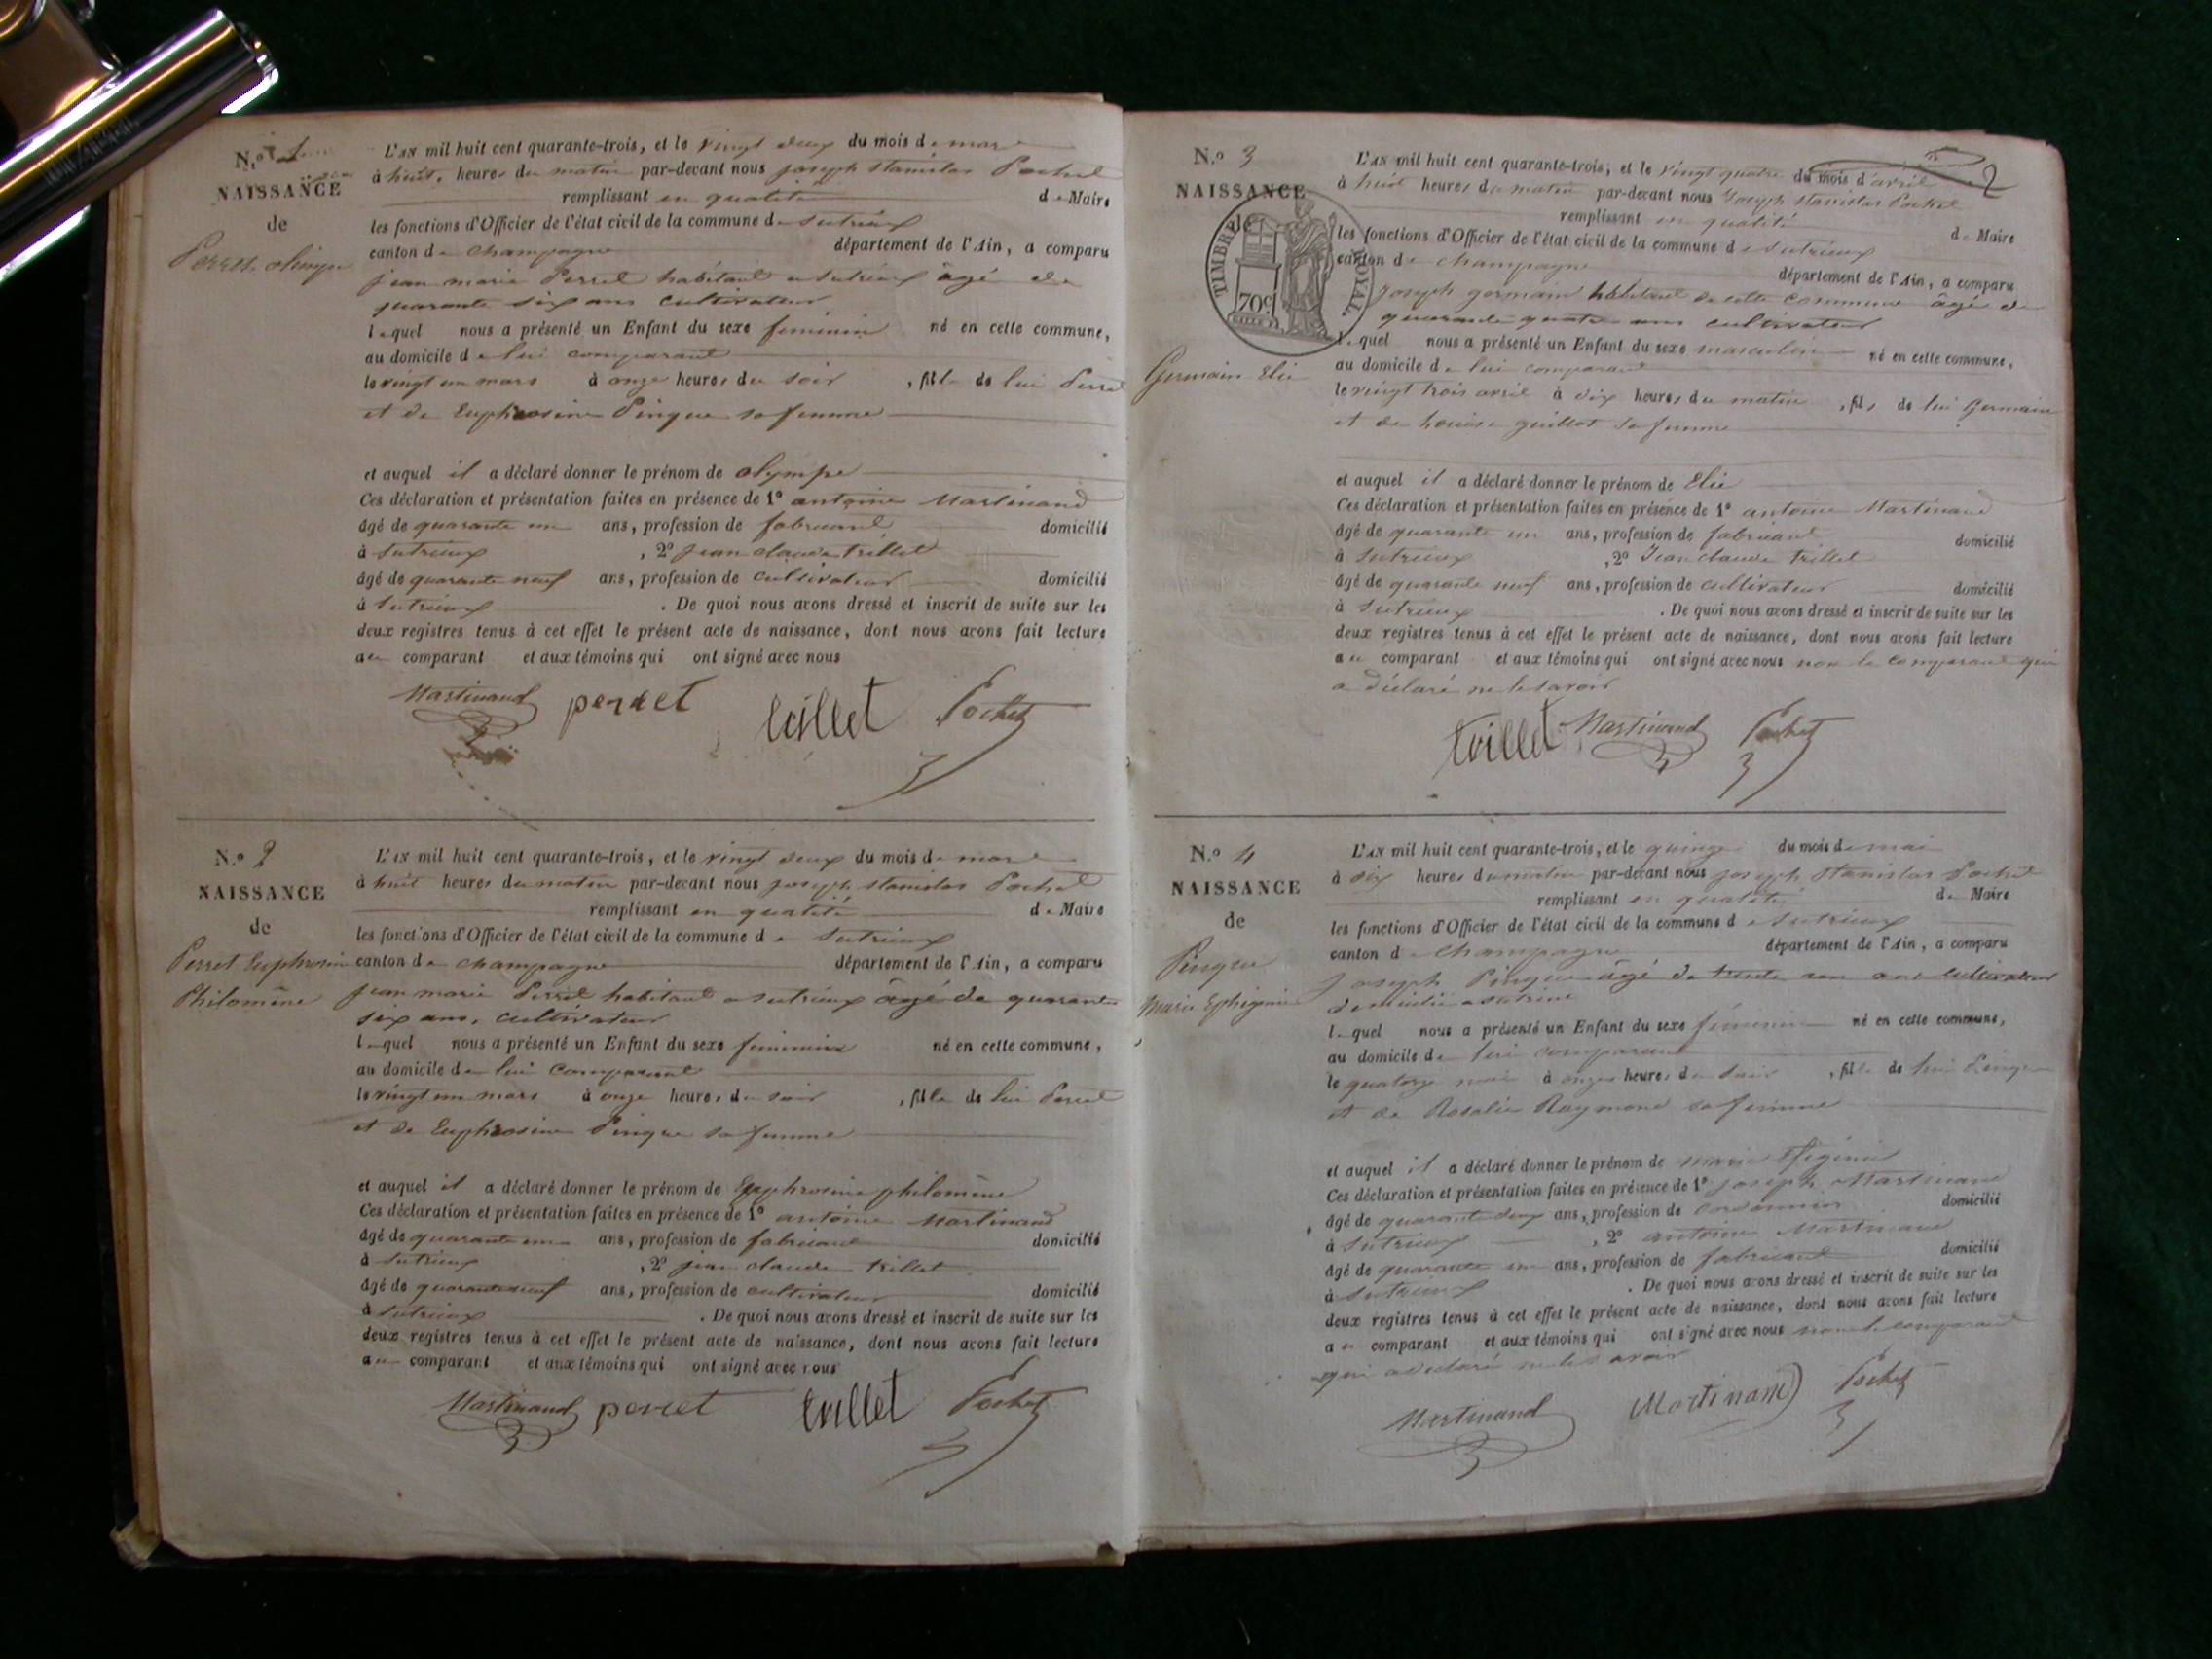 N.º 1
NAISSANCE
de
Perret olimpe
L'AN mil huit cent quarante-trois, et le vingt deux du mois de mars
à huit heures du matin par-devant nous joseph stanislas Pochet
remplissant en qualité de Maire
les fonctions d'Officier de l'état civil de la commune de Sutrieux
canton de champagne département de l'Ain, a comparu
jean marie Perret habitant a Sutrieux âgé de
quarante six ans cultivateur
lequel nous a présenté un Enfant du sexe féminin né en cette commune,
au domicile de lui comparant
le vingt un mars à onze heures du soir, fille de lui Perret
et de Euphrosine Pingue sa femme
et auquel il a déclaré donner le prénom de olympe
Ces déclaration et présentation faites en présence de 1º antoine Martinand
âgé de quarante un ans, profession de fabricant domicilié
à Sutrieux, 2º jean claude trillet
âgé de quarante neuf ans, profession de cultivateur domicilié
à Sutrieux. De quoi nous avons dressé et inscrit de suite sur les
deux registres tenus à cet effet le présent acte de naissance, dont nous avons fait lecture
au comparant et aux témoins qui ont signé avec nous
Martinand perret trillet Pochet
N.º 2
NAISSANCE
de
Perret Euphrosine
Philomène
L'AN mil huit cent quarante-trois, et le vingt deux du mois de mars
à huit heures du matin par-devant nous joseph stanislas Pochet
remplissant en qualité de Maire
les fonctions d'Officier de l'état civil de la commune de Sutrieux
canton de champagne département de l'Ain, a comparu
jean marie Perret habitant a Sutrieux âgé de quarante
six ans, cultivateur
lequel nous a présenté un Enfant du sexe féminin né en cette commune,
au domicile de lui comparant
le vingt un mars à onze heures du soir, fille de lui Perret
et de Euphrosine Pingue sa femme
et auquel il a déclaré donner le prénom de Euphrosine philomène
Ces déclaration et présentation faites en présence de 1º antoine Martinand
âgé de quarante un ans, profession de fabricant domicilié
à Sutrieux, 2º jean claude trillet
âgé de quarante neuf ans, profession de cultivateur domicilié
à Sutrieux. De quoi nous avons dressé et inscrit de suite sur les
deux registres tenus à cet effet le présent acte de naissance, dont nous avons fait lecture
au comparant et aux témoins qui ont signé avec nous
Martinand perret trillet Pochet
2
N.º 3
NAISSANCE
de
TIMBRE ROYAL
70c
Germain Elie
L'AN mil huit cent quarante-trois, et le vingt quatre du mois d'avril
à huit heures du matin par-devant nous Joseph stanislas Pochet
remplissant en qualité de Maire
les fonctions d'Officier de l'état civil de la commune de Sutrieux
canton de champagne département de l'Ain, a comparu
Joseph germain habitant de cette commune âgé de
quarante quatre ans cultivateur
lequel nous a présenté un Enfant du sexe masculin né en cette commune,
au domicile de lui comparant
le vingt trois avril à dix heures du matin, fils de lui Germain
et de louise guillot sa femme
et auquel il a déclaré donner le prénom de Elie
Ces déclaration et présentation faites en présence de 1º antoine Martinand
âgé de quarante un ans, profession de fabricant domicilié
à Sutrieux, 2º Jean claude trillet
âgé de quarante neuf ans, profession de cultivateur domicilié
à Sutrieux. De quoi nous avons dressé et inscrit de suite sur les
deux registres tenus à cet effet le présent acte de naissance, dont nous avons fait lecture
au comparant et aux témoins qui ont signé avec nous non le comparant qui
a déclaré ne le savoir
trillet Martinand Pochet
N.º 4
NAISSANCE
de
Pingue
Marie Ephigénie
L'AN mil huit cent quarante-trois, et le quinze du mois de mai
à six heures du matin par-devant nous joseph Stanislas Pochet
remplissant en qualité de Maire
les fonctions d'Officier de l'état civil de la commune de Sutrieux
canton de Champagne département de l'Ain, a comparu
Joseph Pingue âgé de trente un ans cultivateur
domicilié a sutrieux
lequel nous a présenté un Enfant du sexe féminin né en cette commune,
au domicile de lui comparant
le quatorze mai à onze heures du soir, fille de lui Pingue
et de Rosalie Raymond sa femme
et auquel il a déclaré donner le prénom de marie
Ces déclaration et présentation faites en présence de 1º joseph Martinand
âgé de quarante deux ans, profession de cordonnier domicilié
à Sutrieux, 2º antoine Martinand
âgé de quarante un ans, profession de fabricant domicilié
à Sutrieux. De quoi nous avons dressé et inscrit de suite sur les
deux registres tenus à cet effet le présent acte de naissance, dont nous avons fait lecture
au comparant et aux témoins qui ont signé avec nous non le comparant
qui a déclaré ne le savoir
Martinand Martinand Pochet